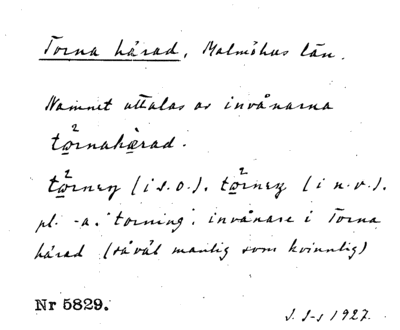 Torna härad, Malmöhus län.
Namnet uttalas av invånarna
tɷ̀rnahärad.
(i s. o.), (i n. v.),
pl. -a. 'torning', invånare i Torna
härad (såväl manlig som kvinnlig)
Nr 5829.
1927.